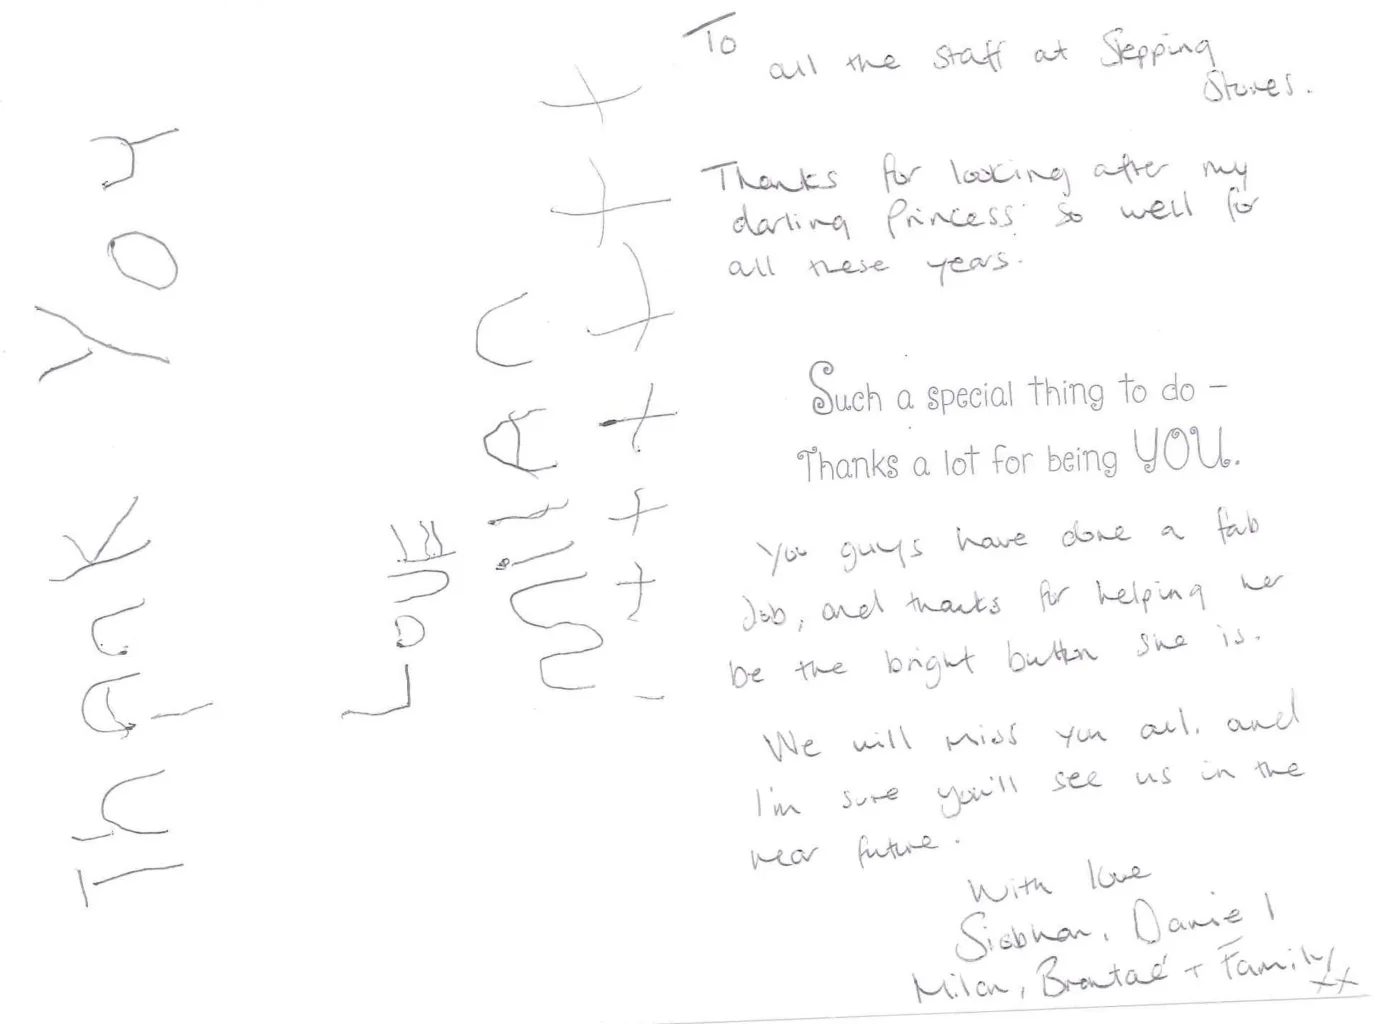 Thank You
Love
Siian
++++++
To
all the staff at Stepping
Stones.
Thanks for looking after my
darling Princess so well for
all these years.
Such a special thing to do –
Thanks a lot for being YOU.
You guys have done a fab
Job, and thanks for helping her
be the bright button she is.
We will miss you all. and
I'm sure you'll see us in the
near future.
With love
Siobhan, Daniel
Milan, + Family
xx